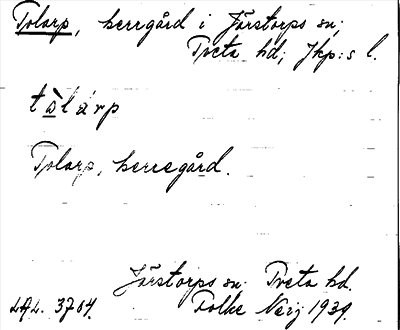 Tolarp, herrgård i Järstorps sn;
Tveta hd; Jkp:s l.
tòlárp
Tolarp, herregård.
Järstorps sn. Tveta hd.
LAL. 3704. Folke Neij 1939.